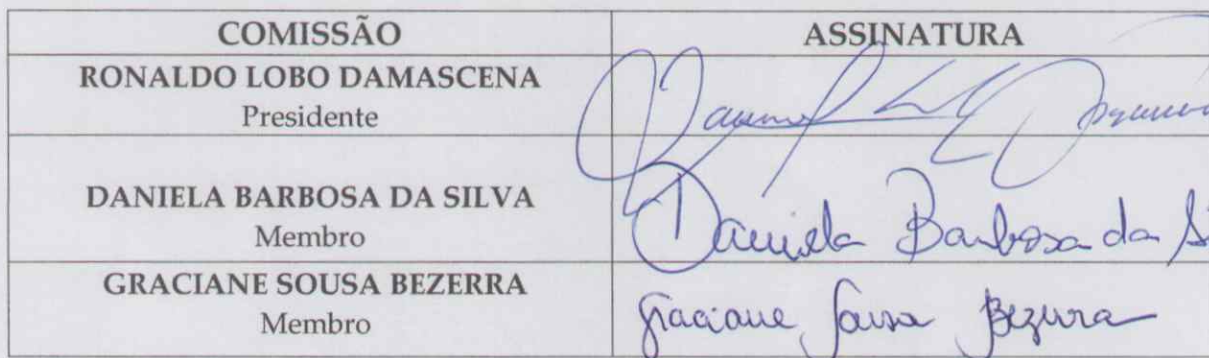 COMISSÃO ASSINATURA
RONALDO LOBO DAMASCENA
Presidente
DANIELA BARBOSA DA SILVA
Daniela Barbosa da
Membro
GRACIANE SOUSA BEZERRA
Graciane Sousa Bezerra
Membro